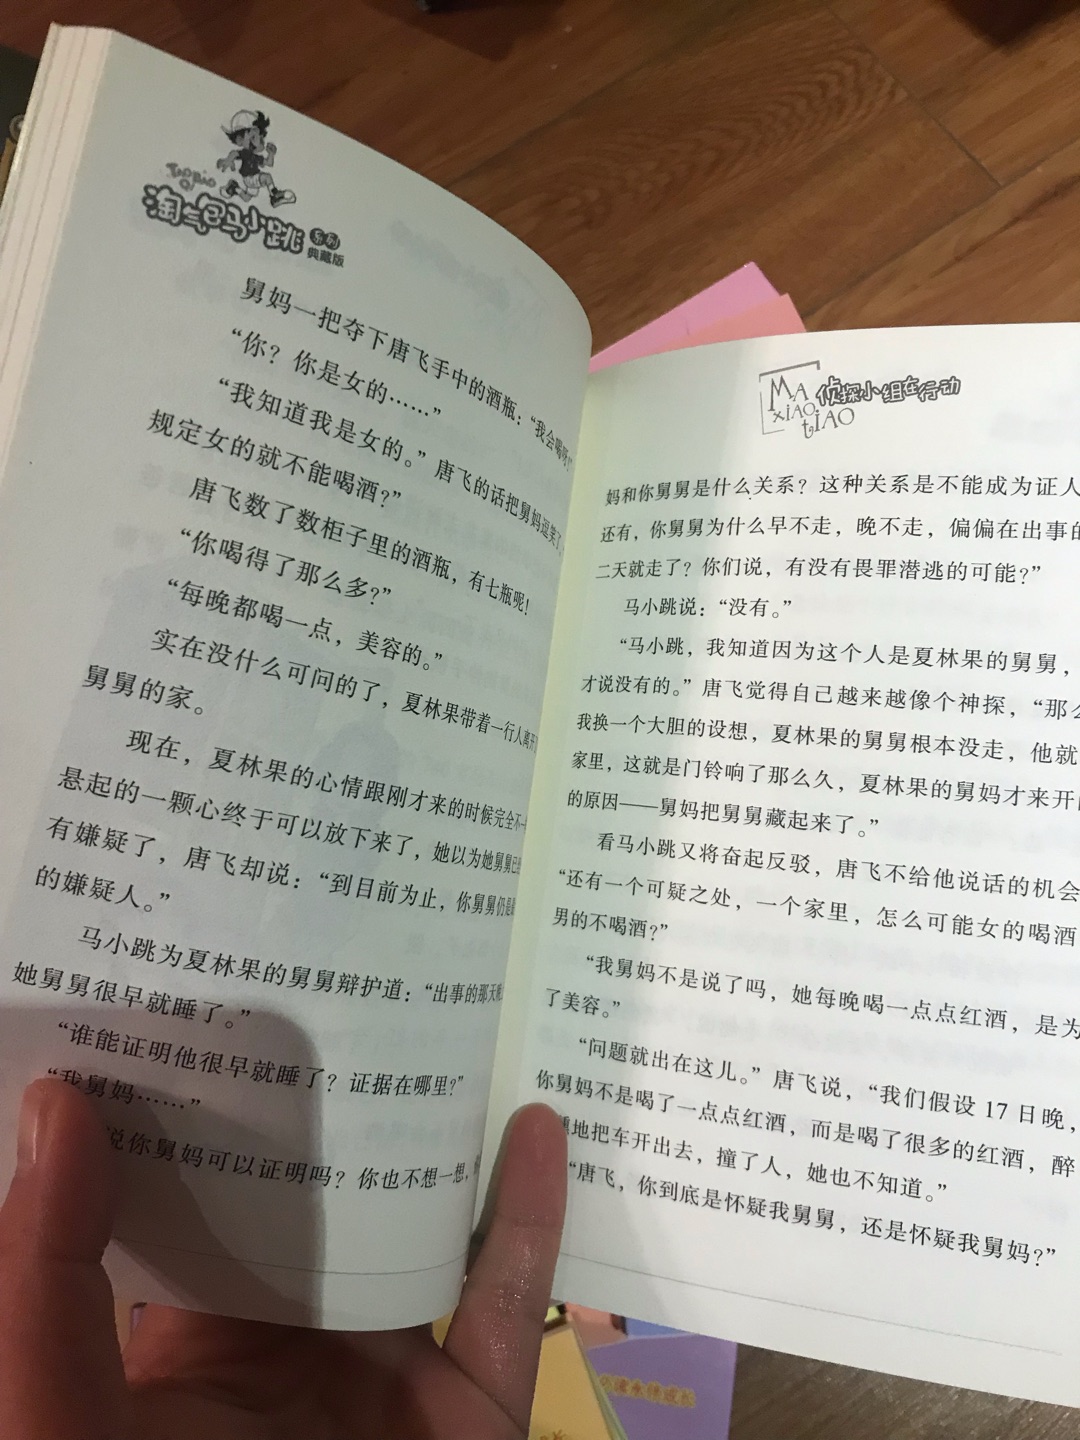 TaoQiBao
淘气包马小跳 系列
典藏版
舅妈一把夺下唐飞手中的酒瓶：“我会喝呀！”
“你？你是女的……”
“我知道我是女的。”唐飞的话把舅妈逗笑了，
规定女的就不能喝酒？”
唐飞数了数柜子里的酒瓶，有七瓶呢！
“你喝得了那么多？”
“每晚都喝一点，美容的。”
实在没什么可问的了，夏林果带着一行人离开
舅舅的家。
现在，夏林果的心情跟刚才来的时候完全不一
悬起的一颗心终于可以放下来了，她以为她舅舅已
有嫌疑了，唐飞却说：“到目前为止，你舅舅仍是
的嫌疑人。”
马小跳为夏林果的舅舅辩护道：“出事的那天晚
她舅舅很早就睡了。”
“谁能证明他很早就睡了？证据在哪里？”
“我舅妈……”
说你舅妈可以证明吗？你也不想一想，
MA XiAO tiAO 侦探小组在行动
妈和你舅舅是什么关系？这种关系是不能成为证人
还有，你舅舅为什么早不走，晚不走，偏偏在出事的
二天就走了？你们说，有没有畏罪潜逃的可能？”
马小跳说：“没有。”
“马小跳，我知道因为这个人是夏林果的舅舅，
才说没有的。”唐飞觉得自己越来越像个神探，“那么
我换一个大胆的设想，夏林果的舅舅根本没走，他就
家里，这就是门铃响了那么久，夏林果的舅妈才来开
的原因——舅妈把舅舅藏起来了。”
看马小跳又将奋起反驳，唐飞不给他说话的机会
“还有一个可疑之处，一个家里，怎么可能女的喝酒
男的不喝酒？”
“我舅妈不是说了吗，她每晚喝一点点红酒，是为
了美容。”
“问题就出在这儿。”唐飞说，“我们假设 17 日晚，
你舅妈不是喝了一点点红酒，而是喝了很多的红酒，醉
地把车开出去，撞了人，她也不知道。”
“唐飞，你到底是怀疑我舅舅，还是怀疑我舅妈？”